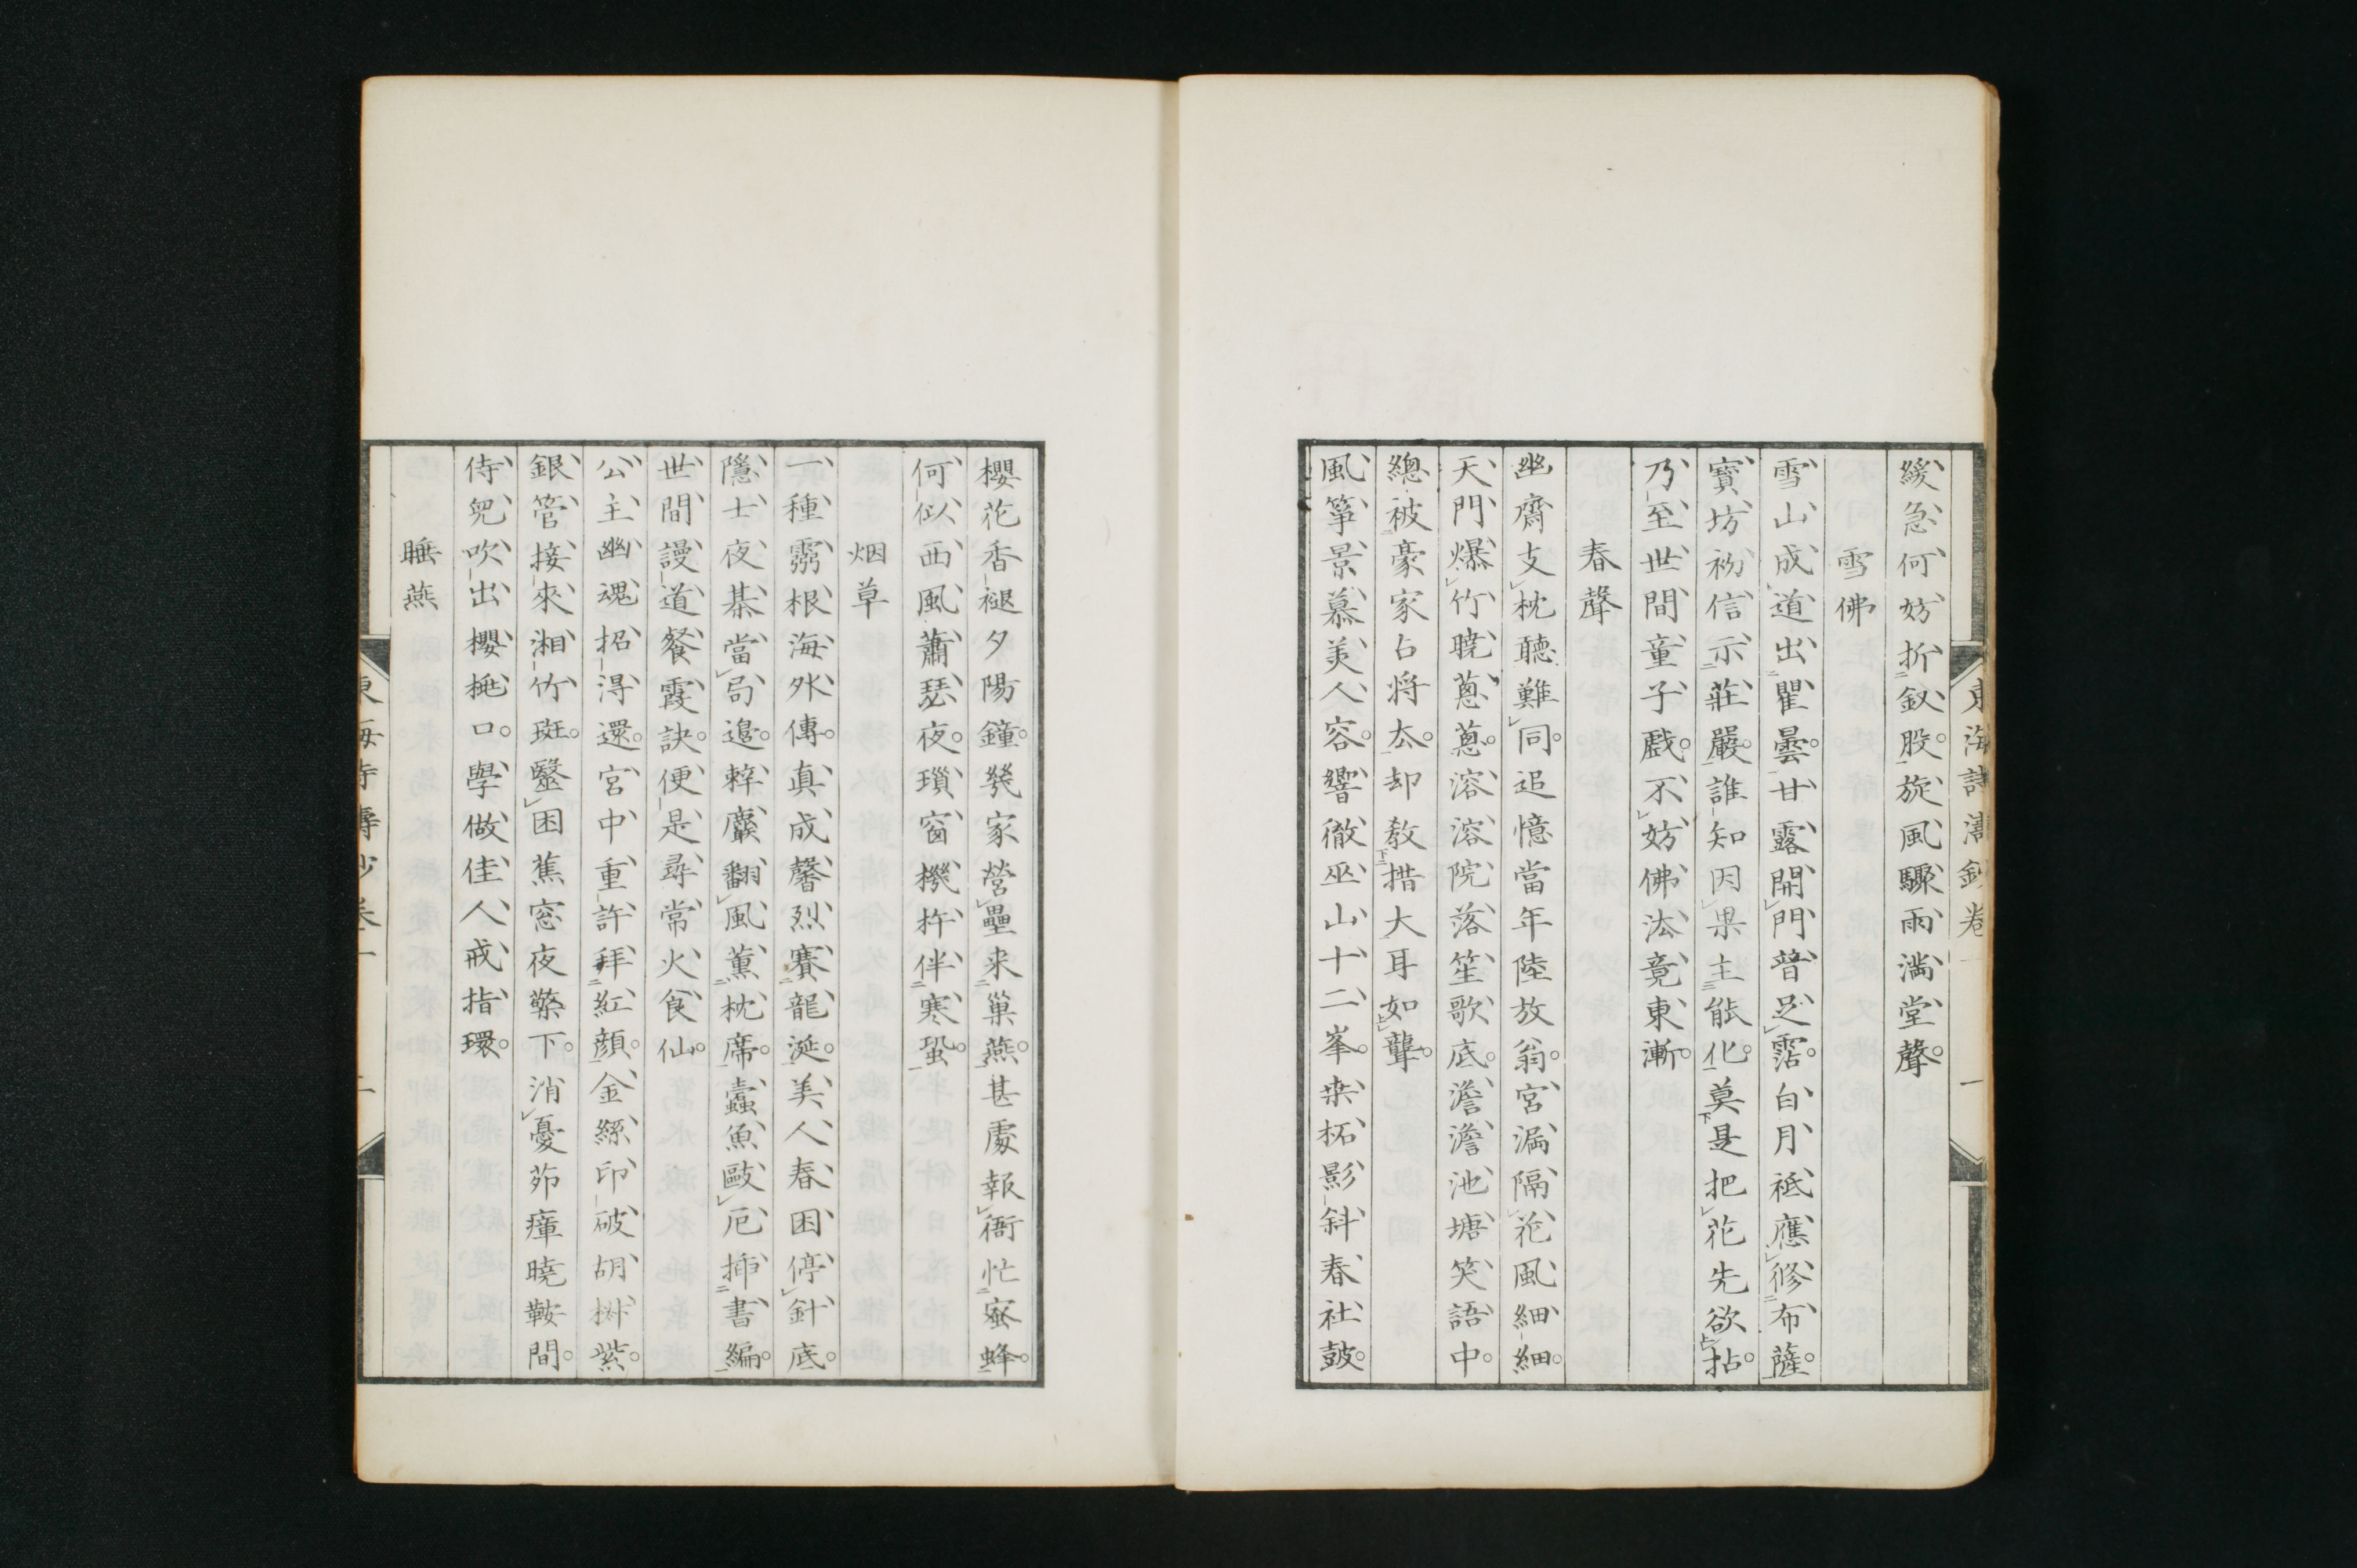 緩急何妨折釵股旋風驟雨満堂聲
雪佛
雪山成道出瞿曇甘露開門普足霑白月祇應修布薩
寶坊初信示莊嚴誰知因果主能化莫是把花先欲拈
乃至世間童子戯不妨佛法竟東漸
春聲
幽齋支枕聽難同追憶當年陸放翁宮漏隔花風細細
天門爆竹曉蔥蔥溶溶院落笙歌底澹澹池塘笑語中
總被豪家占将去却教措大耳如聾
風箏景慕美人容響徹巫山十二峯桒柘影斜春社皷
東海詩濤鈔卷一 一
櫻花香褪夕陽鐘幾家營壘来巢燕甚處報衙忙蜜蜂
何似西風蕭瑟夜瑣窗機杼伴寒蛩
烟草
一種靈根海外傳真成馨烈賽龍涎美人春困停針底
隱士夜棊當局邊辣麝翻風薫枕席蠧魚毆厄揷書編
世間謾道餐霞訣便是尋常火食仙
公主幽魂招得還宮中重許拜紅顔金絲印破胡樹紫
銀管接來湘竹斑毉困蕉窓夜檠下消憂茆瘴曉鞍間
侍兒吹出櫻桃口學做佳人戒指環
睡燕
東海詩濤鈔卷一 二